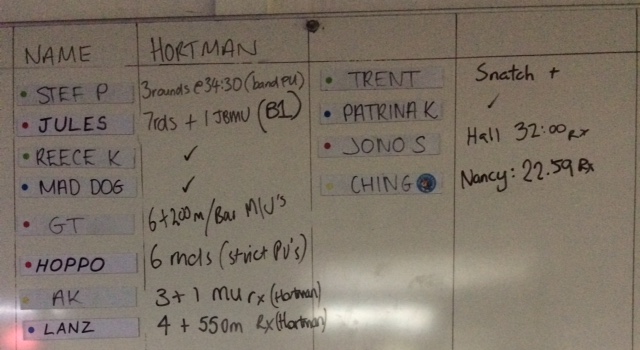 NAME HORTMAN
STEF P 3rounds @ 34:30 (band PU)
JULES 7rds + 1 JBMU (B1)
REECE K ✓
MAD DOG ✓
GT 6+200m/Bar M/U's
HOPPO 6 rnds (strict PU's)
AK 3+1 mu rx (Hortman)
LANZ 4 + 550m Rx (Hortman)
TRENT Snatch +
PATRINA K ✓
JONO S Hall 32:00 Rx
CHING Nancy: 22.59 Rx